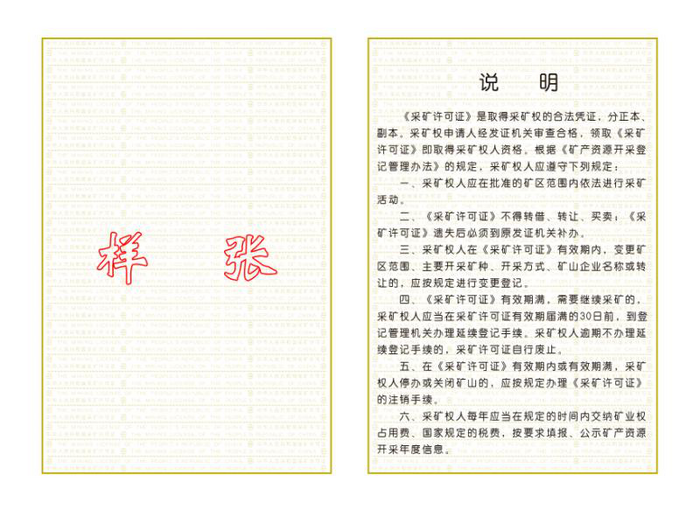 样 张
说 明
《采矿许可证》是取得采矿权的合法凭证，分正本、
副本。采矿权申请人经发证机关审查合格，领取《采矿
许可证》即取得采矿权人资格。根据《矿产资源开采登
记管理办法》的规定，采矿权人应遵守下列规定：
一、采矿权人应在批准的矿区范围内依法进行采矿
活动。
二、《采矿许可证》不得转借、转让、买卖；《采
矿许可证》遗失后必须到原发证机关补办。
三、采矿权人在《采矿许可证》有效期内，变更矿
区范围、主要开采矿种、开采方式、矿山企业名称或转
让的，应按规定进行变更登记。
四、《采矿许可证》有效期满，需要继续采矿的，
采矿权人应当在采矿许可证有效期届满的30日前，到登
记管理机关办理延续登记手续。采矿权人逾期不办理延
续登记手续的，采矿许可证自行废止。
五、在《采矿许可证》有效期内或有效期满，采矿
权人停办或关闭矿山的，应按规定办理《采矿许可证》
的注销手续。
六、采矿权人每年应当在规定的时间内交纳矿业权
占用费、国家规定的税费，按要求填报、公示矿产资源
开采年度信息。